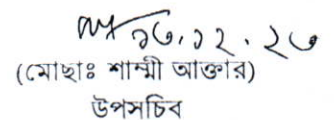 ১৩.১২.২৩
(মোছাঃ শাম্মী আক্তার)
উপসচিব